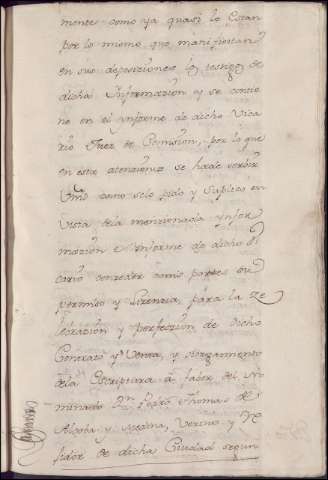 mente como ya quasi lo estan
por lo mismo que manifiestan
en sus deposiciones los testigos de
dicha Informacion y se contie
ne en el informe de dicho Vica
rio Juez de Comision, por lo que
en estas atenciones se ha de servir
Vm̃d como selo pido y Suplico en
vista dela mencionada ynfor
macion e Informe de dicho Vi
cario conceder como portes su
permiso y Licencia, para la ze
lebracion y perfeccion de dicho
Contrato y Venta, y otorgamiento
dela Escriptura á fabor del No
minado Dn Pedro Thomas de
Alcoba y Medina, Vezino y Re
gidor de dicha Ciudad segun